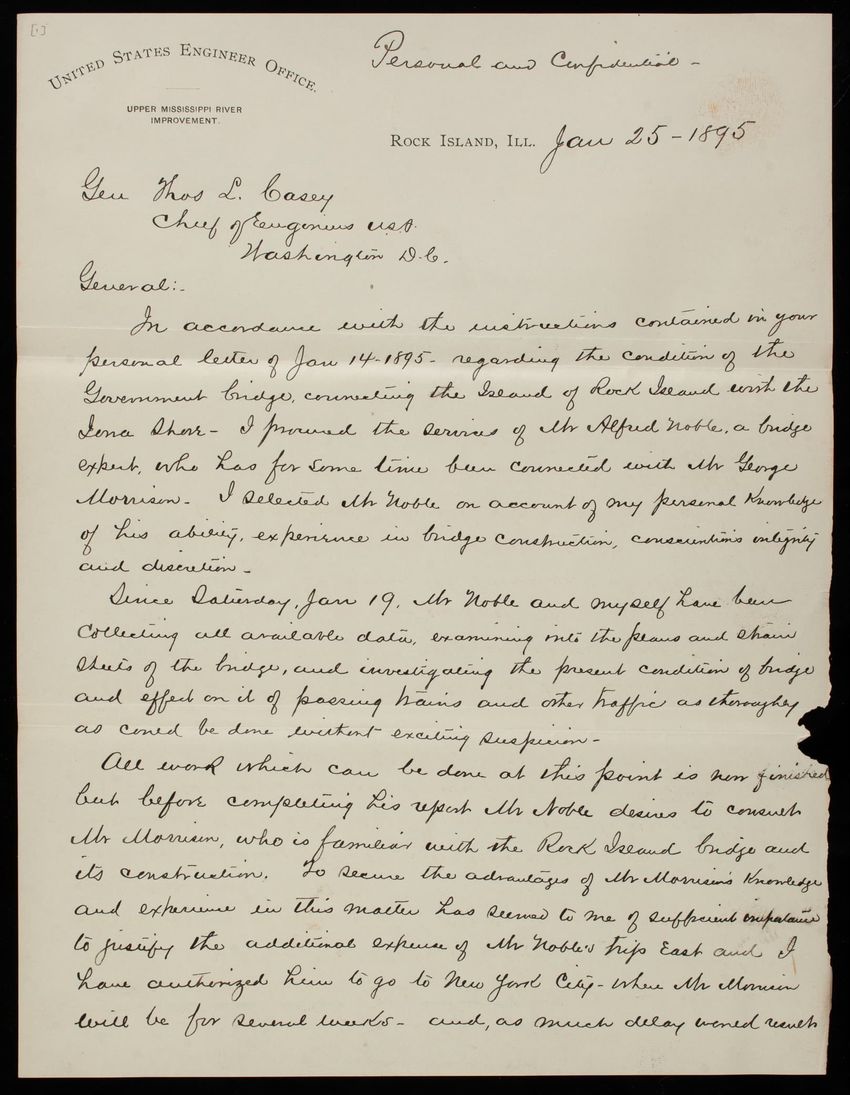 [1]
UNITED STATES ENGINEER OFFICE.
UPPER MISSISSIPPI RIVER
IMPROVEMENT.
Personal and Confidential -
ROCK ISLAND, ILL. Jan 25 - 1895
Gen Thos L. Casey
Chief of Engineers USA.
Washington D.C.
General:-
In accordance with the instructions contained in your
personal letter of Jan 14-1895- regarding the condition of the
Government bridge, connecting the Island of Rock Island with the
Iowa Shore - I procured the services of Mr Alfred Noble, a bridge
expert, who has for some time been connected with Mr George
Morrison. I selected Mr Noble on account of my personal knowledge
of his ability, experience in bridge construction, conscientious integrity
and discretion -
Since Saturday, Jan 19, Mr Noble and myself have been
collecting all available data, examining into the plans and strain
sheets of the bridge, and investigating the present condition of bridge
and effect on it of passing trains and other traffic as thoroughly
as could be done without exciting suspicion -
All work which can be done at this point is now finished
but before completing his report Mr Noble desires to consult
Mr Morrison, who is familiar with the Rock Island bridge and
its construction. To secure the advantages of Mr Morrison's knowledge
and experience in this matter has seemed to me of sufficient importance
to justify the additional expense of Mr Noble's trip East and I
have authorized him to go to New York City - where Mr Morrison
will be for several weeks - and, as much delay would result